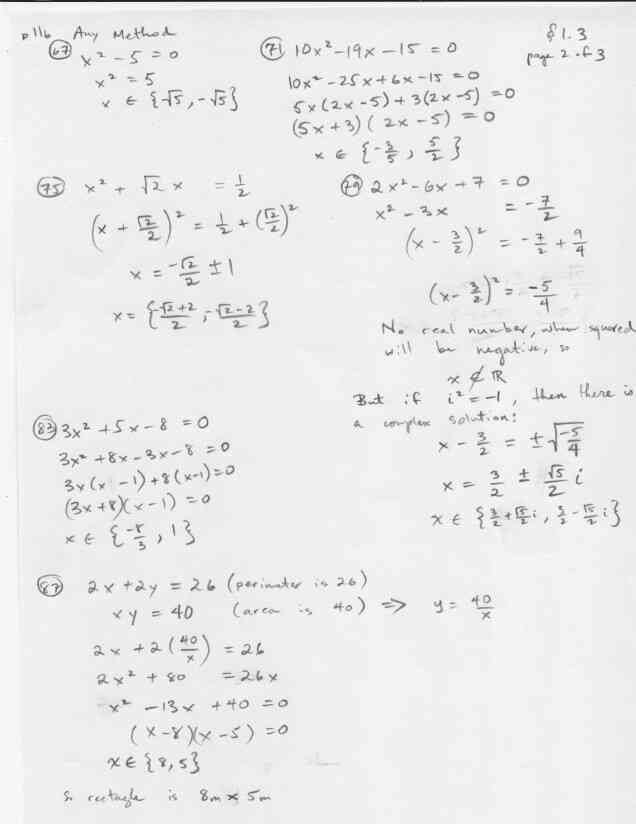 p116 Any Method
§1.3
page 2 of 3
(67) x² - 5 = 0
x² = 5
x ∈ {√5, -√5}
(71) 10x² - 19x - 15 = 0
10x² - 25x + 6x - 15 = 0
5x(2x - 5) + 3(2x - 5) = 0
(5x + 3)(2x - 5) = 0
x ∈ {-3/5, 5/2}
(75) x² + √2 x = 1/2
(x + √2/2)² = 1/2 + (√2/2)²
x = -√2/2 ± 1
x = {-√2+2/2, -√2-2/2}
(79) 2x² - 6x + 7 = 0
x² - 3x = -7/2
(x - 3/2)² = -7/2 + 9/4
(x - 3/2)² = -5/4
No real number, when squared
will be negative, so
x ∉ ℝ
But if i² = -1, then there is
a complex solution:
x - 3/2 = ±√(-5/4)
x = 3/2 ± √5/2 i
x ∈ {3/2 + √5/2 i, 3/2 - √5/2 i}
(83) 3x² + 5x - 8 = 0
3x² + 8x - 3x - 8 = 0
3x(x - 1) + 8(x - 1) = 0
(3x + 8)(x - 1) = 0
x ∈ {-8/3, 1}
(87) 2x + 2y = 26 (perimeter is 26)
xy = 40 (area is 40) ⇒ y = 40/x
2x + 2(40/x) = 26
2x² + 80 = 26x
x² - 13x + 40 = 0
(x - 8)(x - 5) = 0
x ∈ {8, 5}
So rectagle is 8m × 5m